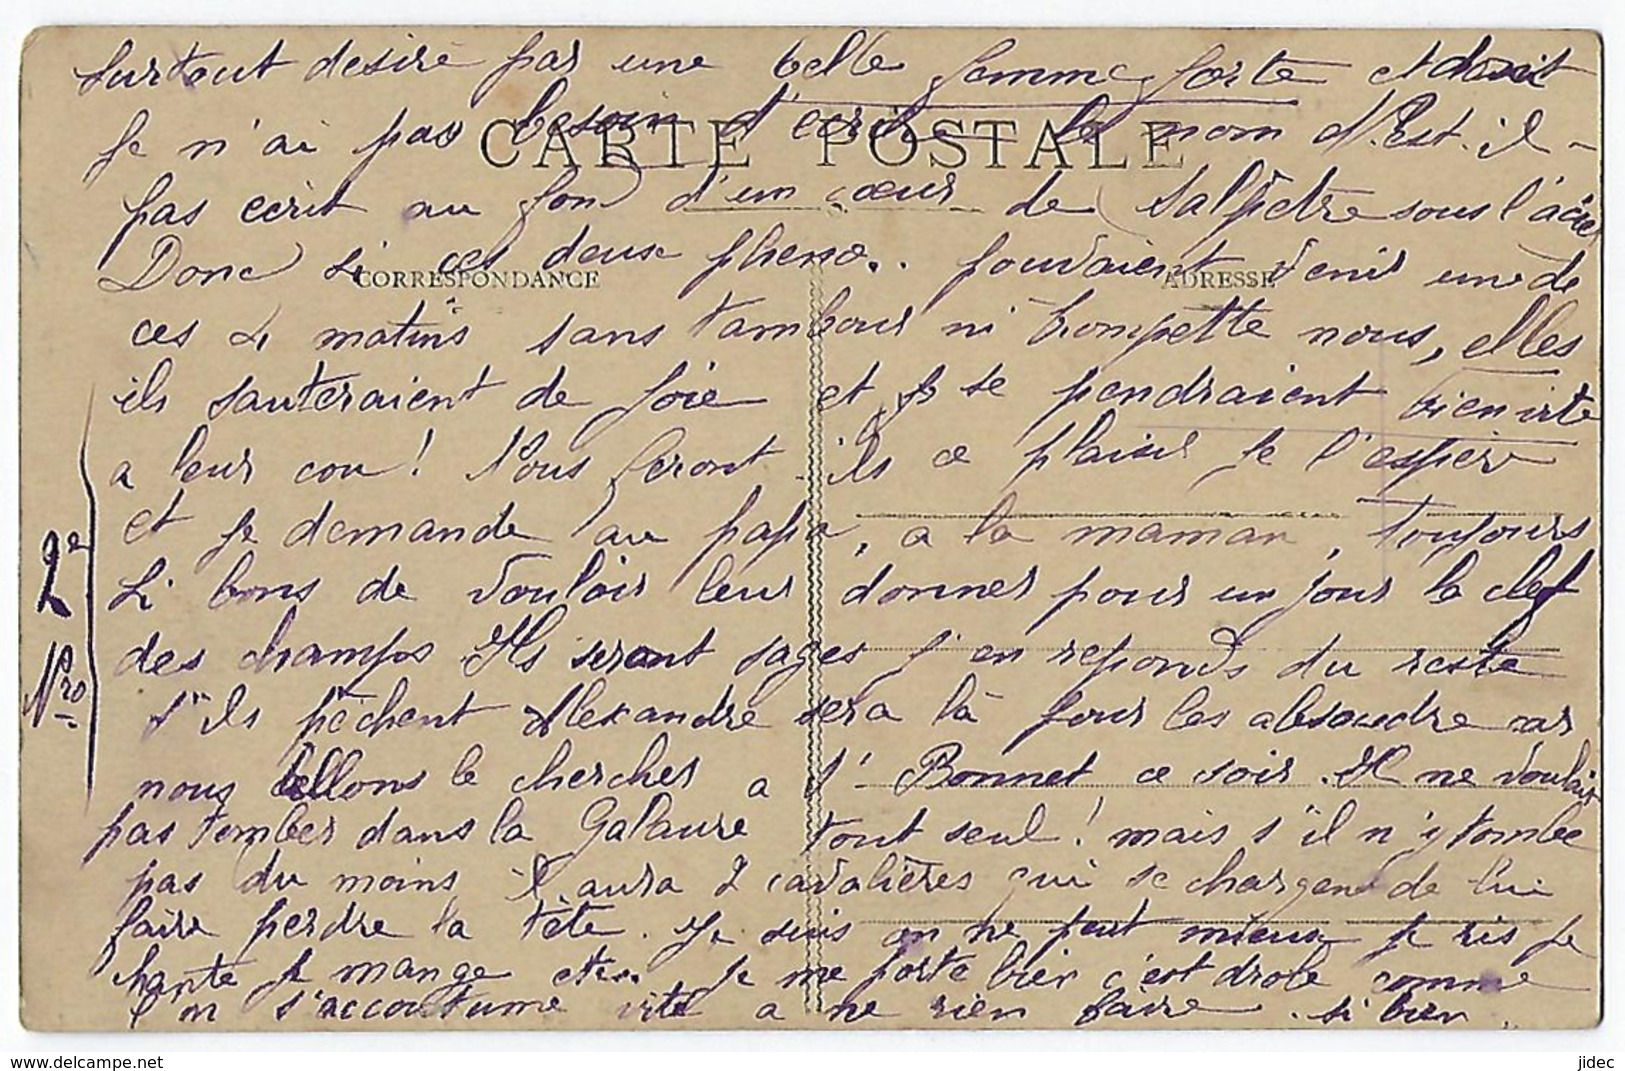 surtout desiré par une belle femme forte et dont
CARTE POSTALE
je n'ai pas besoin d'ecrire le nom d'Est-il-
pas ecrit au fond d'un cœur de Salpetre sous l'acier
CORRESPONDANCE
ADRESSE
Donc si ces deux pheno.. pouvaient venir une de
ces 4 matins sans tambour ni trompette nous, elles
ils sauteraient de joie et se pendraient bien vite
a leur cou! Nous feront-ils ce plaisir je l'espère
et je demande au papa, a la maman, toujours
2e
si bons de vouloir leur donner pour un jour la clef
des champs Ils seront sages j'en reponds du reste
Nro
s'ils pêchent Alexandre sera là pour les absoudre car
nous allons le chercher a St Bonnet ce soir. Il ne voulait
pas tomber dans la Galaure tout seul! mais s'il n'y tombe
pas du moins il aura 2 cavalières qui se chargent de lui
faire perdre la tête. Je suis on ne peut mieux je ris je
chante je mange etc... je me porte bien c'est drole comme
l'on s'accoutume vite a ne rien faire. si bien..
jidec